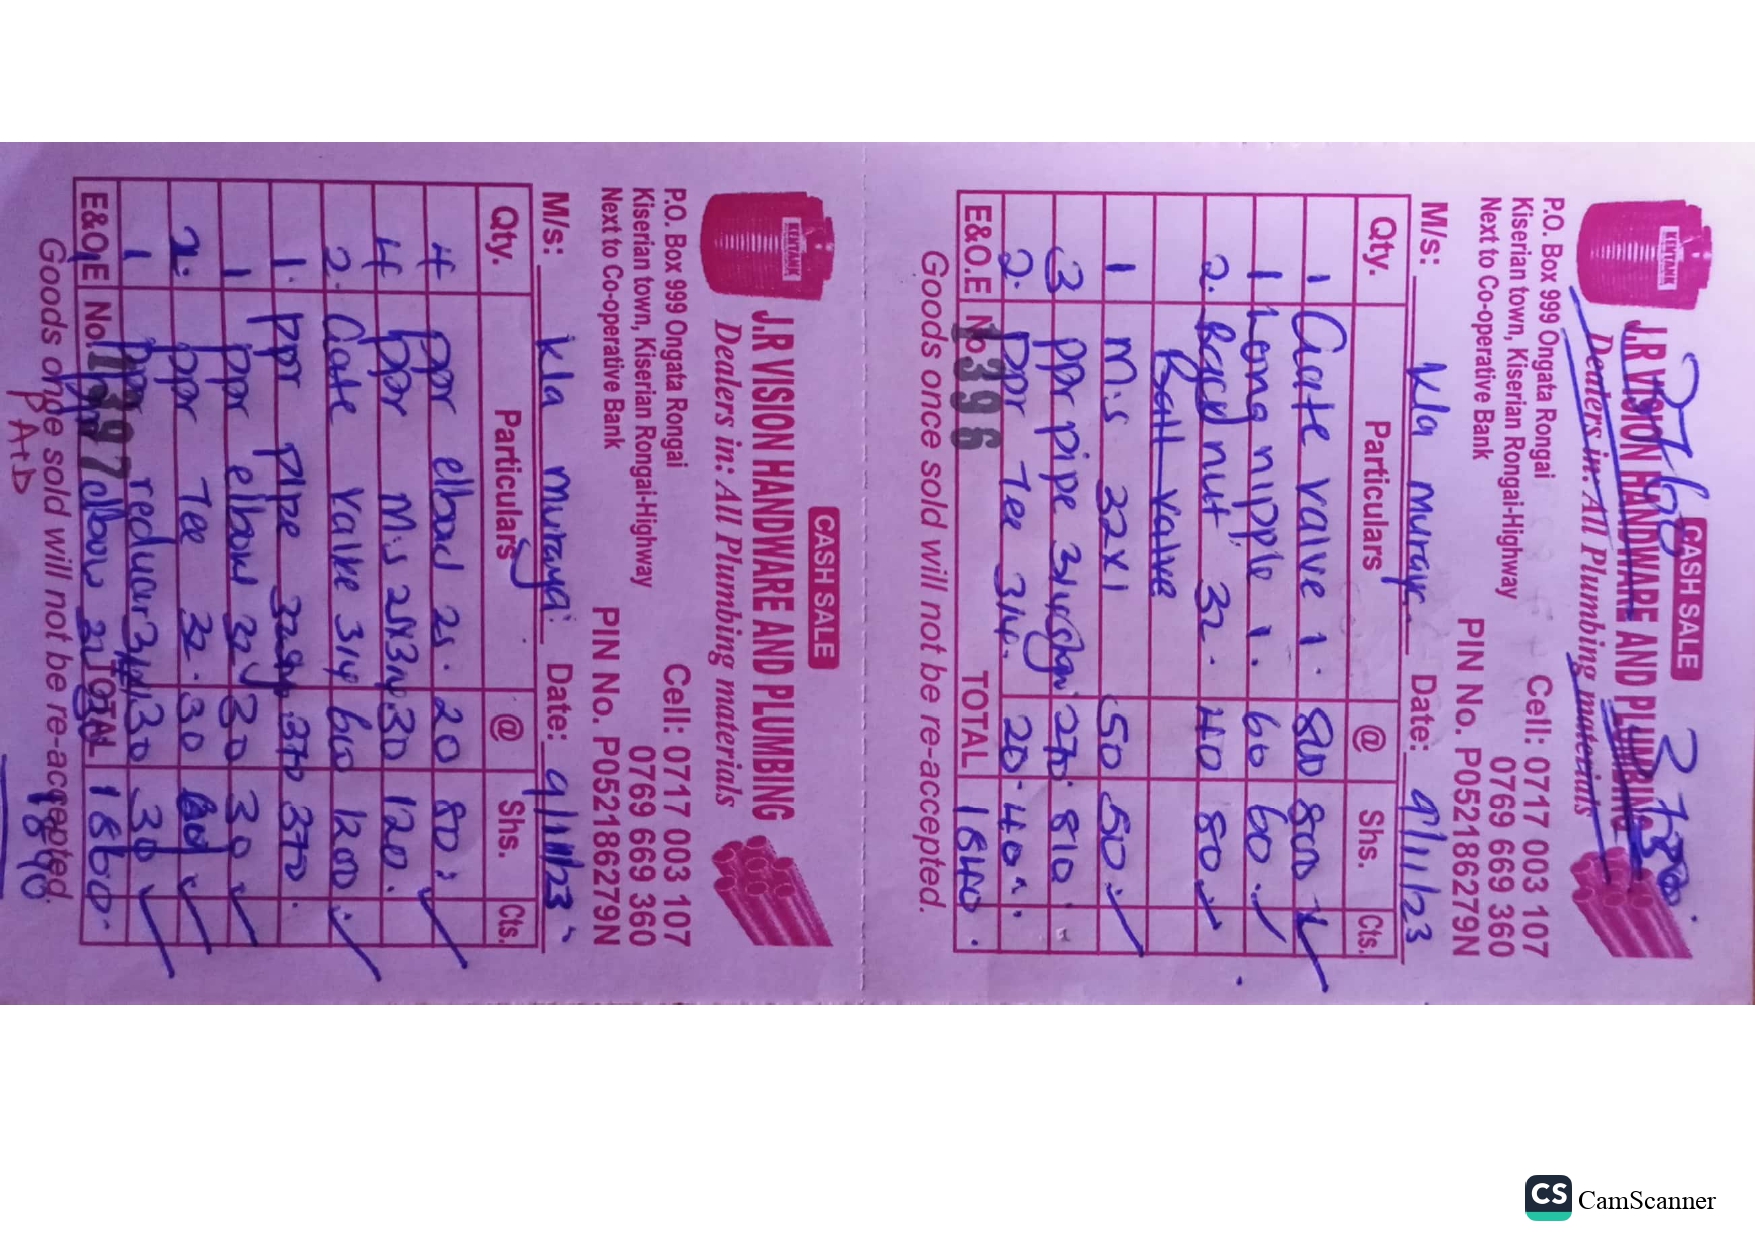 CASH SALE
3760
2780.
J.R VISION HANDWARE AND PLUMBING
Dealers in: All Plumbing materials
P.O. Box 999 Ongata Rongai
Kiserian town, Kiserian Rongai-Highway
Next to Co-operative Bank
Cell: 0717 003 107
0769 669 360
PIN No. P052186279N
KENTANK
M/s: Kla muraya Date: 9/11/23
Qty. Particulars @ Shs. Cts.
1 Gate valve 1. 800 800
1 Long nipple 1. 60 60.
2. nut 32. 40 80
Ball valve
1 M.s 32x1 50 50
3 ppr pipe 3/4 270 810
2. ppr Tee 3/4. 20 40
E&O.E No. 1396 TOTAL 1840.
Goods once sold will not be re-accepted.
CASH SALE
J.R VISION HANDWARE AND PLUMBING
Dealers in: All Plumbing materials
P.O. Box 999 Ongata Rongai
Kiserian town, Kiserian Rongai-Highway
Next to Co-operative Bank
Cell: 0717 003 107
0769 669 360
PIN No. P052186279N
KENTANK
M/s: Kla muraya Date: 9/11/23
Qty. Particulars @ Shs. Cts.
4 ppr elbow 25. 20 80
4 ppr M.s 25x3/4 30 120.
2. Gate valve 3/4 600 1200
1. ppr pipe 32 370 370.
1 ppr elbow 32 30 30
2. ppr Tee 32. 30 60
1 ppr reducer 30 30
E&O.E No. 1397 TOTAL 1860.
1 ppr elbow 30
Goods once sold will not be re-accepted.
1890
PAID
CS CamScanner